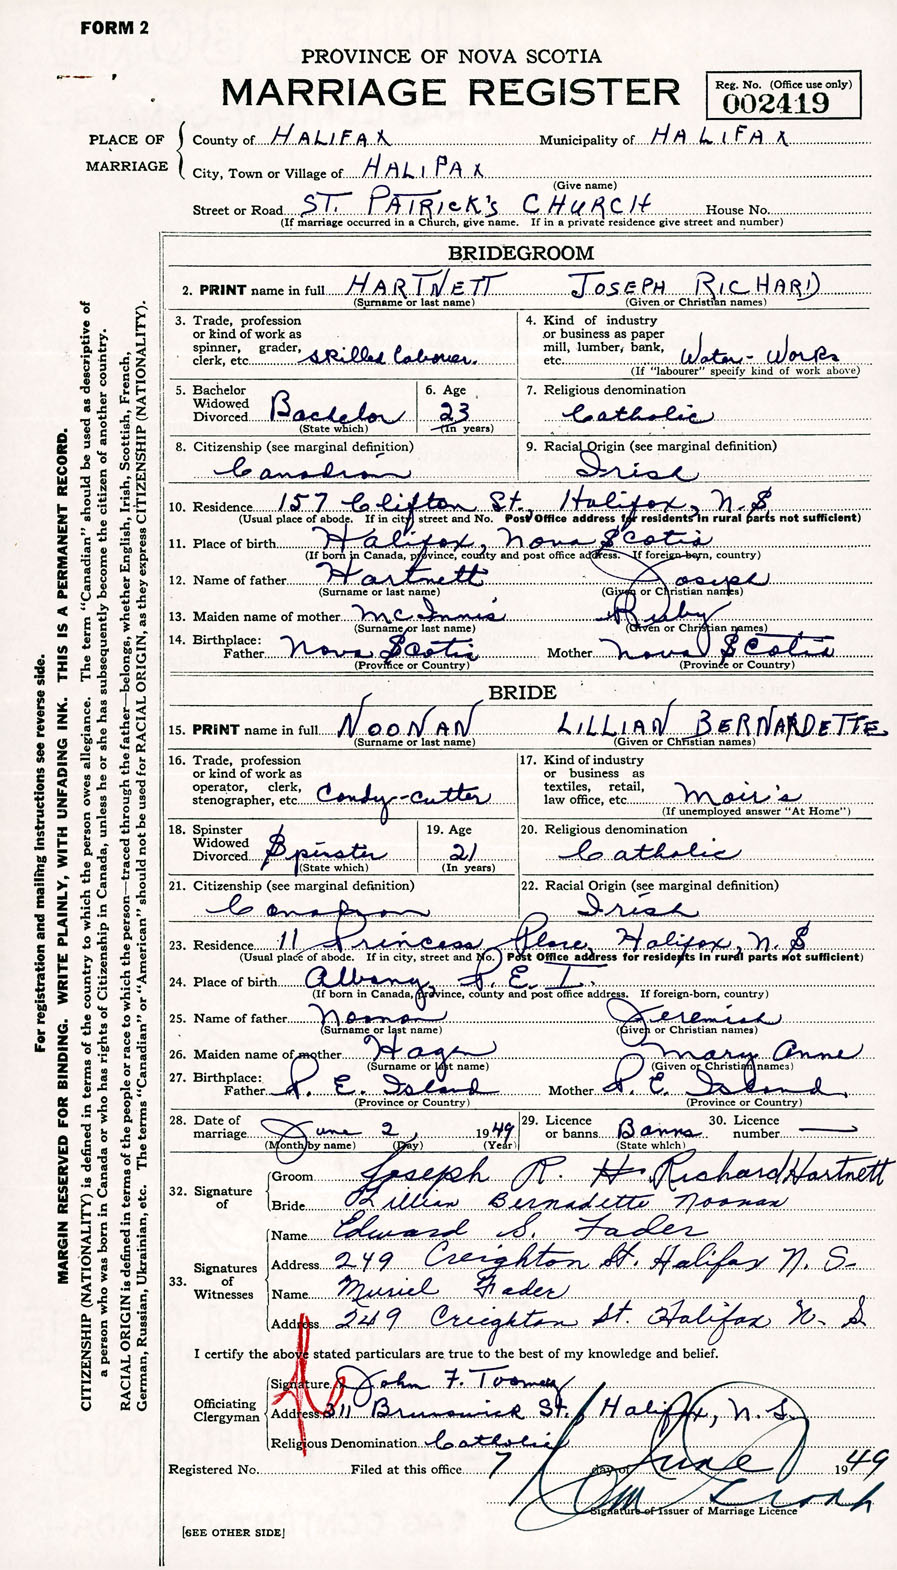 FORM 2
PROVINCE OF NOVA SCOTIA
MARRIAGE REGISTER
Reg. No. (Office use only)
002419
PLACE OF MARRIAGE
County of HALIFAX Municipality of HALIFAX
City, Town or Village of HALIFAX
(Give name)
Street or Road ST. PATRICK'S CHURCH House No.
(If marriage occurred in a Church, give name. If in a private residence give street and number)
BRIDEGROOM
2. PRINT name in full HARTNETT JOSEPH RICHARD
(Surname or last name) (Given or Christian names)
3. Trade, profession or kind of work as spinner, grader, clerk, etc. skilled labourer.
4. Kind of industry or business as paper mill, lumber, bank, etc. Water-Works
(If "labourer" specify kind of work above)
5. Bachelor Widowed Divorced Bachelor
(State which)
6. Age 23
(In years)
7. Religious denomination
Catholic
8. Citizenship (see marginal definition)
Canadian
9. Racial Origin (see marginal definition)
Irish
10. Residence 157 Clifton St., Halifax, N.S
(Usual place of abode. If in city street and No. Post Office address for residents in rural parts not sufficient)
11. Place of birth Halifax, Nova Scotia
(If born in Canada, province, county and post office address. If foreign-born, country)
12. Name of father Hartnett Joseph
(Surname or last name) (Given or Christian names)
13. Maiden name of mother McInnis Ruby
(Surname or last name) (Given or Christian names)
14. Birthplace:
Father Nova Scotia Mother Nova Scotia
(Province or Country) (Province or Country)
BRIDE
15. PRINT name in full NOONAN LILLIAN BERNARDETTE
(Surname or last name) (Given or Christian names)
16. Trade, profession or kind of work as operator, clerk, stenographer, etc. Candy-cutter
17. Kind of industry or business as textiles, retail, law office, etc. Moir's
(If unemployed answer "At Home")
18. Spinster Widowed Divorced Spinster
(State which)
19. Age
21
(In years)
20. Religious denomination
Catholic
21. Citizenship (see marginal definition)
Canadian
22. Racial Origin (see marginal definition)
Irish
23. Residence 11 Princess Place, Halifax, N.S
(Usual place of abode. If in city, street and No. Post Office address for residents in rural parts not sufficient)
24. Place of birth Albany, P. E. I.
(If born in Canada, province, county and post office address. If foreign-born, country)
25. Name of father Noonan Jeremiah
(Surname or last name) (Given or Christian names)
26. Maiden name of mother Hagen Mary Anne
(Surname or last name) (Given or Christian names)
27. Birthplace:
Father P. E. Island Mother P. E. Island
(Province or Country) (Province or Country)
28. Date of marriage June 2, 1949
(Month by name) (Day) (Year)
29. Licence or banns Banns
(State which)
30. Licence number —
32. Signature of
Groom Joseph R. H. Richard Hartnett
Bride Lillian Bernadette Noonan
33. Signatures of Witnesses
Name Edward S. Fader
Address 249 Creighton St. Halifax N. S.
Name Muriel Fader
Address 249 Creighton St. Halifax N. S
I certify the above stated particulars are true to the best of my knowledge and belief.
Officiating Clergyman
Signature John F. Toomey
Address 311 Brunswick St., Halifax, N.S.
Religious Denomination Catholic
Registered No. Filed at this office 7 day of June 1949
Signature of Issuer of Marriage Licence
[SEE OTHER SIDE]
For registration and mailing instructions see reverse side.
MARGIN RESERVED FOR BINDING. WRITE PLAINLY, WITH UNFADING INK. THIS IS A PERMANENT RECORD.
CITIZENSHIP (NATIONALITY) is defined in terms of the country to which the person owes allegiance. The term "Canadian" should be used as descriptive of
a person who was born in Canada or who has rights of Citizenship in Canada, unless he or she has subsequently become the citizen of another country.
RACIAL ORIGIN is defined in terms of the people or race to which the person—traced through the father—belongs, whether English, Irish, Scottish, French,
German, Russian, Ukrainian, etc. The terms "Canadian" or "American" should not be used for RACIAL ORIGIN, as they express CITIZENSHIP (NATIONALITY).